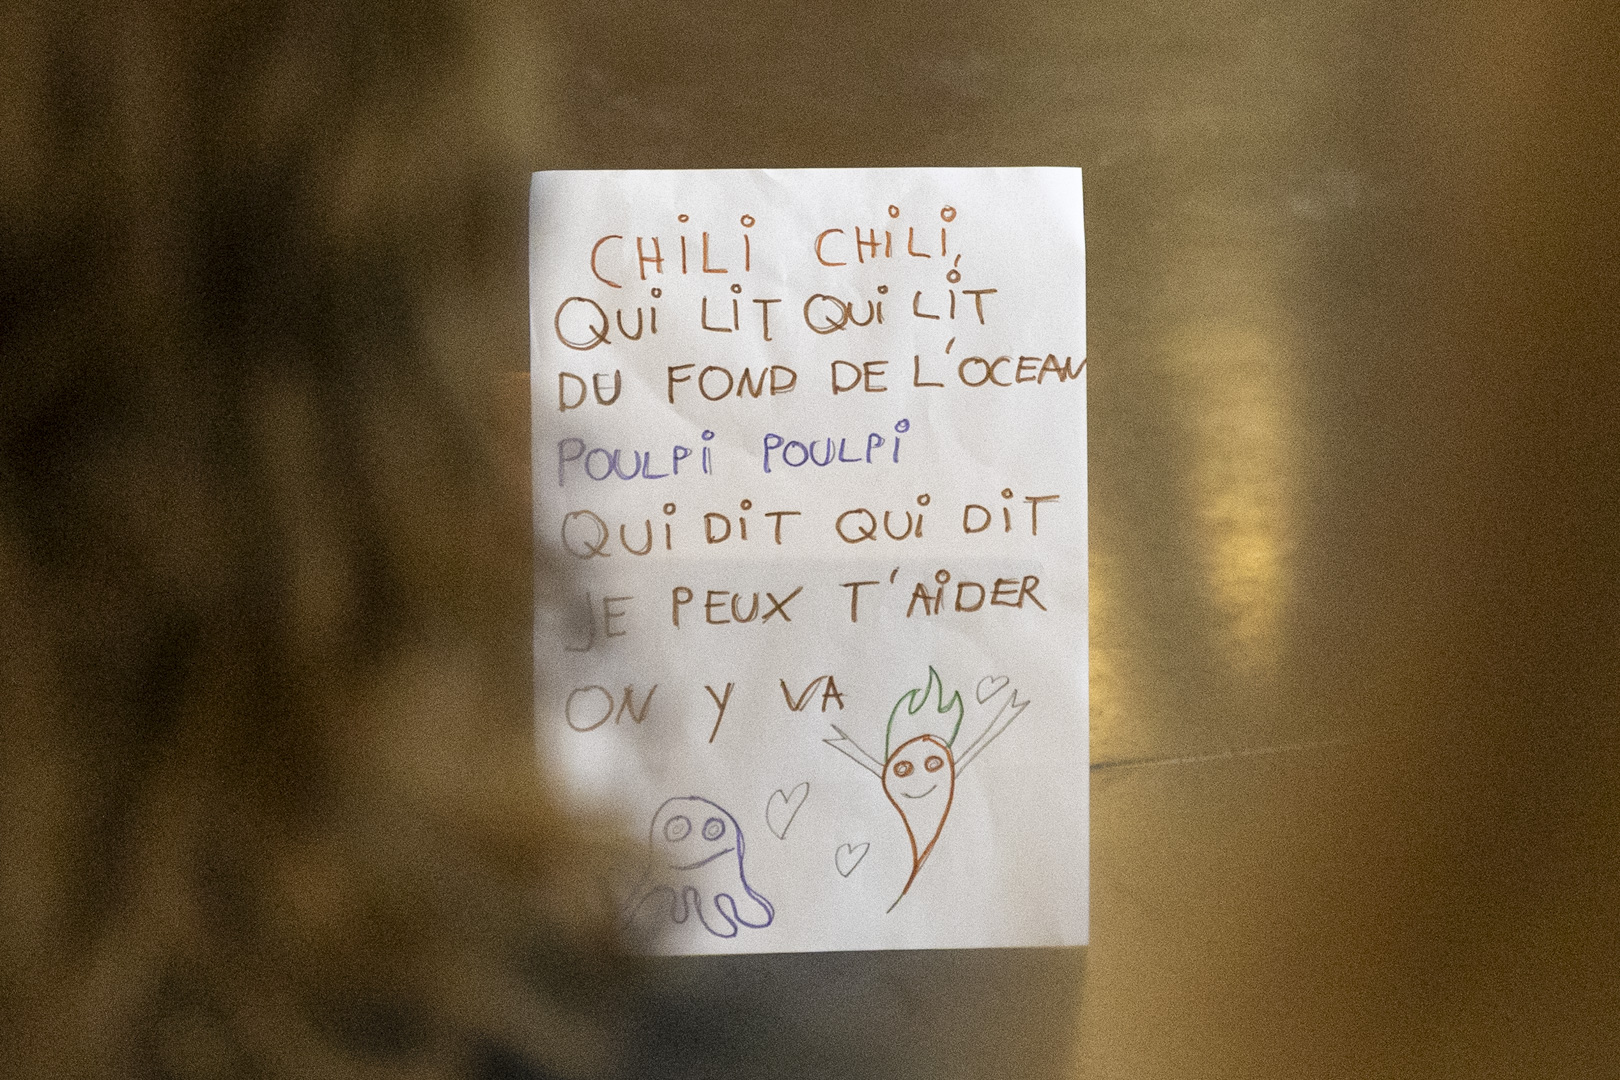 CHiLi CHiLi,
QUi LiT QUi LiT
DU FOND DE L'OCEAN
POULPi POULPi
QUi DiT QUi DiT
JE PEUX T'AiDER
ON Y VA